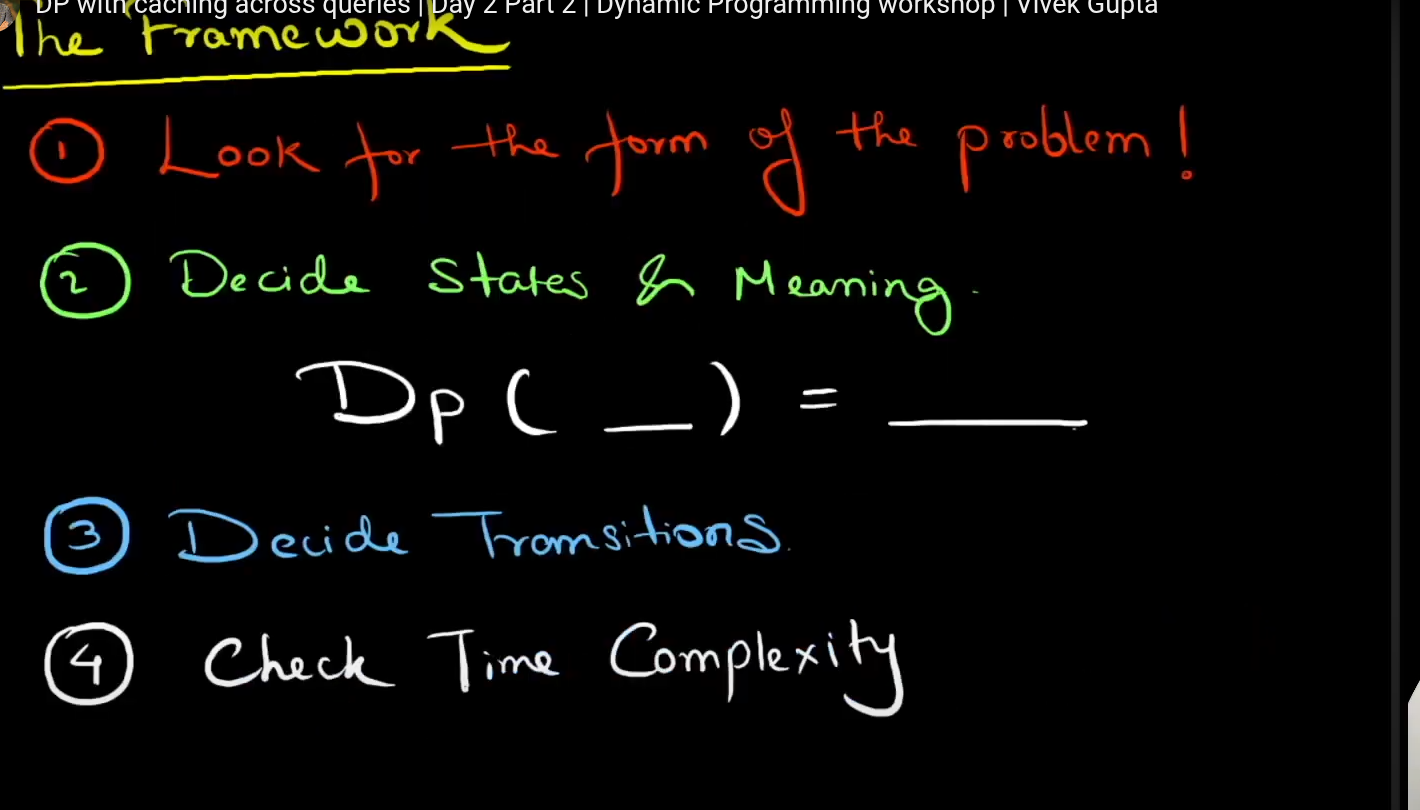 DP with caching across queries | Day 2 Part 2 | Dynamic Programming workshop | Vivek Gupta
The Framework
1 Look for the form of the problem!
2 Decide States & Meaning.
Dp ( __ ) = ____
3 Decide Transitions.
4 Check Time Complexity